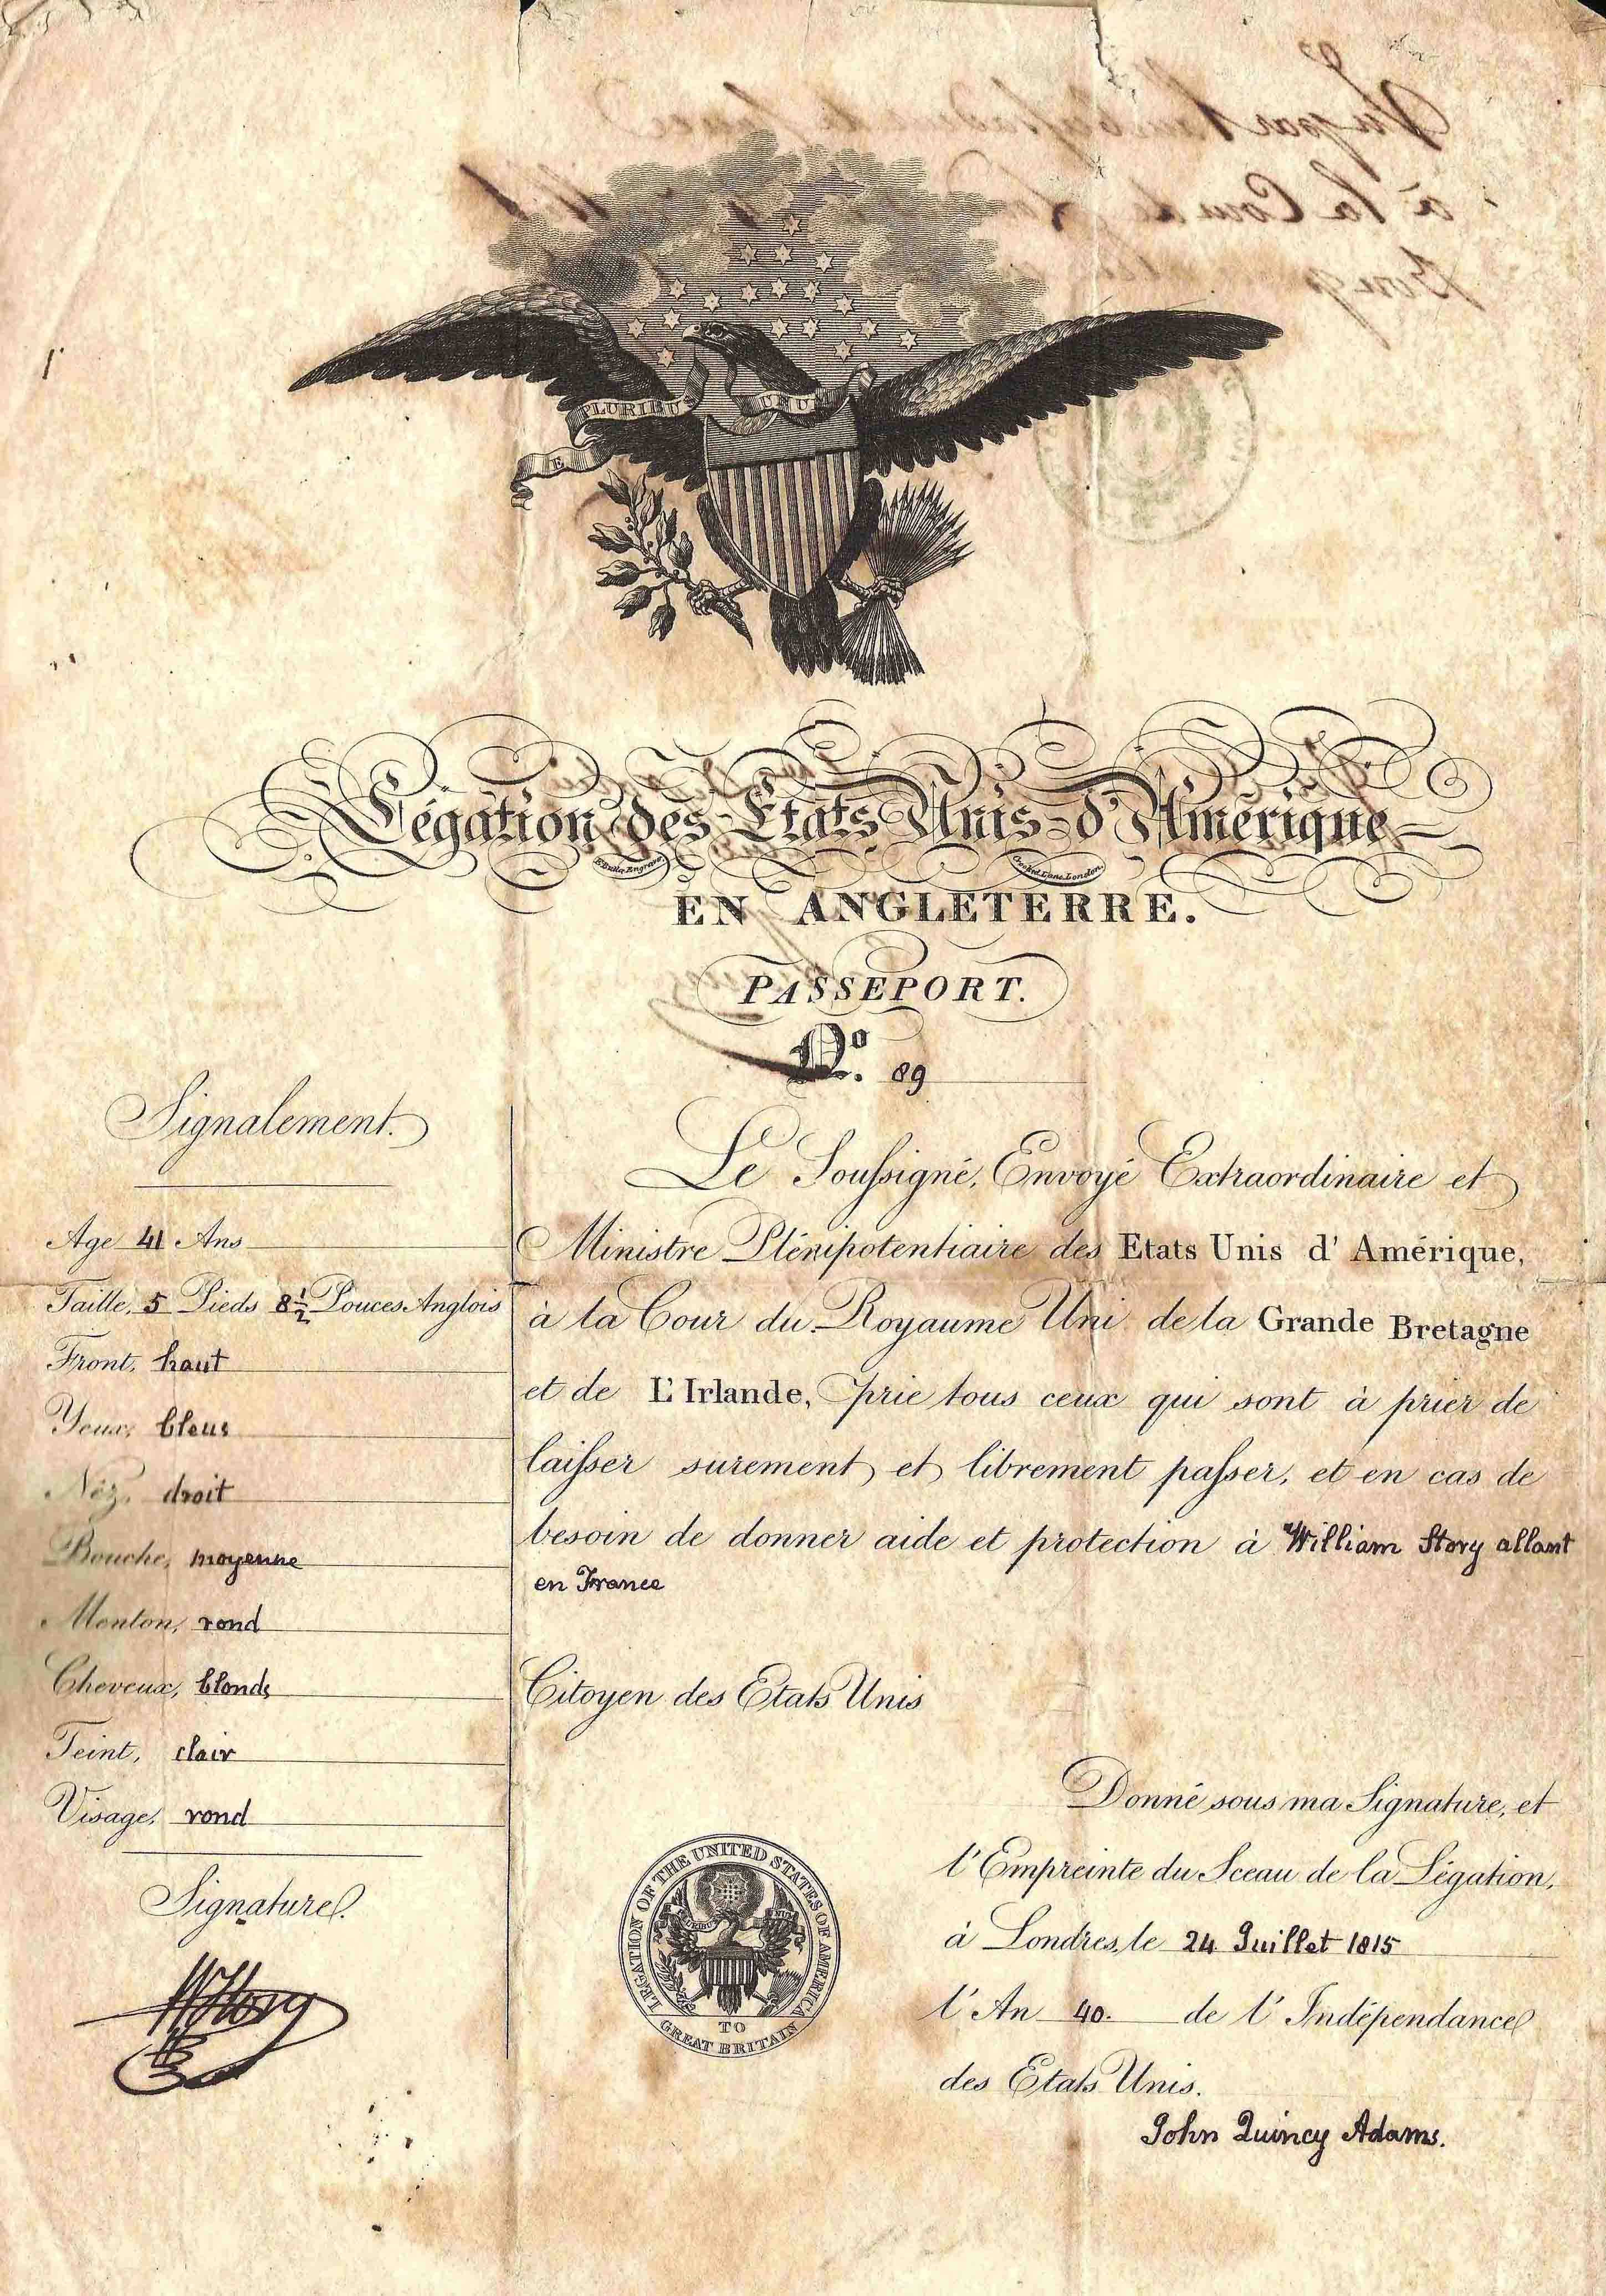 E PLURIBUS UNUM
Légation des Etats Unis d'Amérique
EN ANGLETERRE.
PASSEPORT.
No. 89
Signalement.
Age 41 Ans
Taille, 5 Pieds 8½ Pouces Anglois
Front, haut
Yeux, bleus
Néz, droit
Bouche, moyenne
Menton, rond
Cheveux, blonds
Teint, clair
Visage, rond
Signature.
WStory
Le Soussigné, Envoyé Extraordinaire et
Ministre Plénipotentiaire des Etats Unis d' Amérique,
à la Cour du Royaume Uni de la Grande Bretagne
et de L'Irlande, prie tous ceux qui sont à prier de
laisser surement et librement passer, et en cas de
besoin de donner aide et protection à William Story allant
en France
Citoyen des Etats Unis
Donné sous ma Signature, et
l'Empreinte du Sceau de la Légation,
à Londres, le 24 Juillet 1815
l'An 40. de l'Indépendance
des Etats Unis.
John Quincy Adams.
LEGATION OF THE UNITED STATES OF AMERICA
TO
GREAT BRITAIN